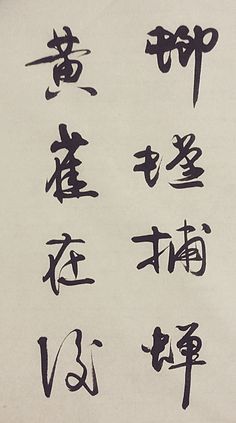 螂螳捕蝉
黄雀在後